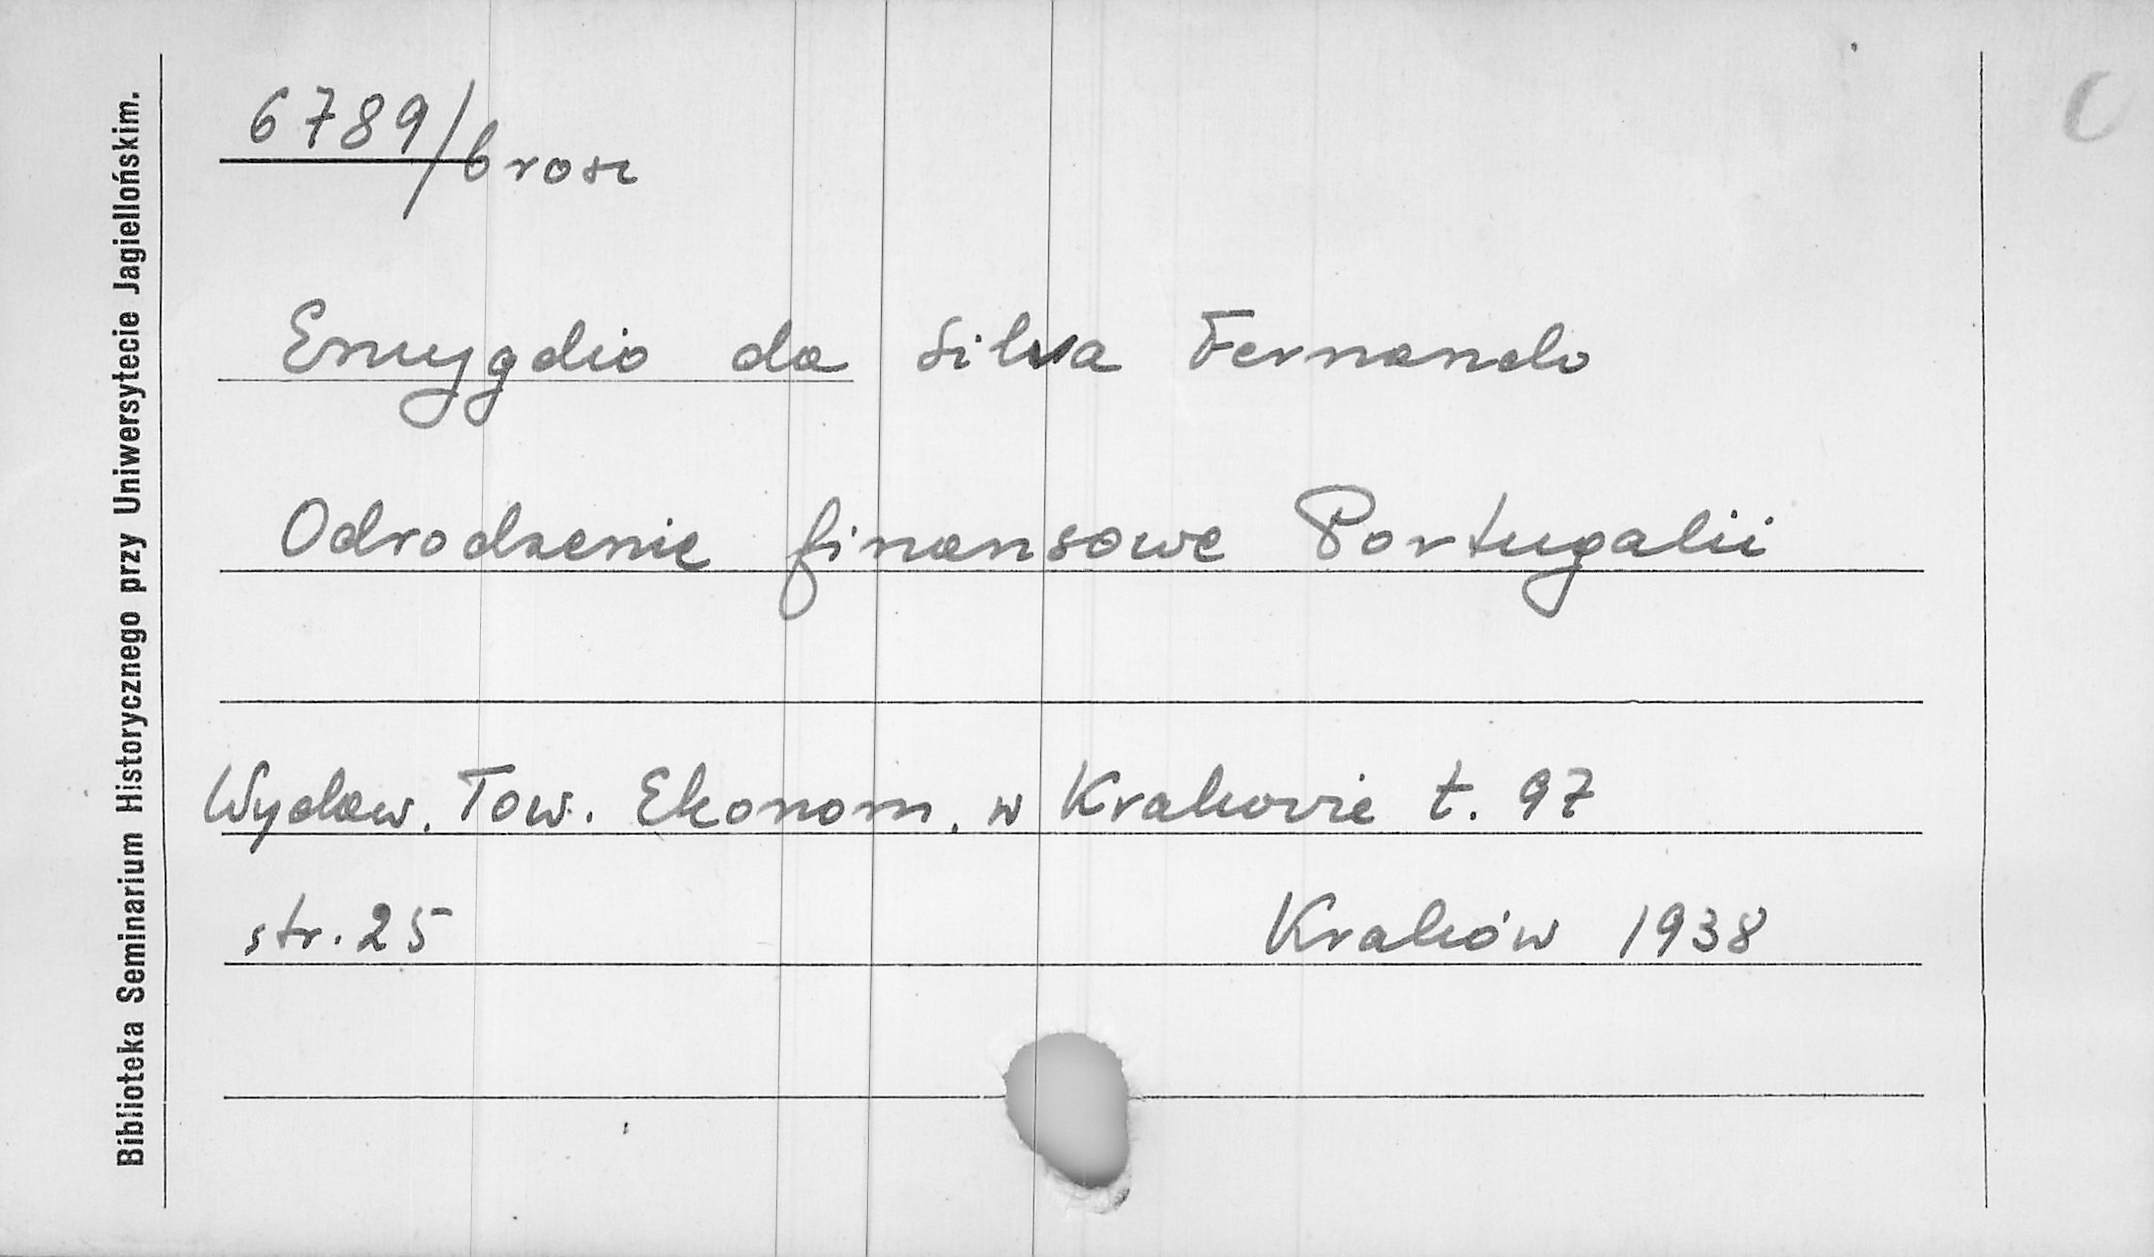 6789/brosz
Emygdio da Silva Fernando
Odrodzenie finansowe Portugalii
Wydaw. Tow. Ekonom. w Krakowie t. 97
str. 25 Kraków 1938
Biblioteka Seminarium Historycznego przy Uniwersytecie Jagiellońskim.